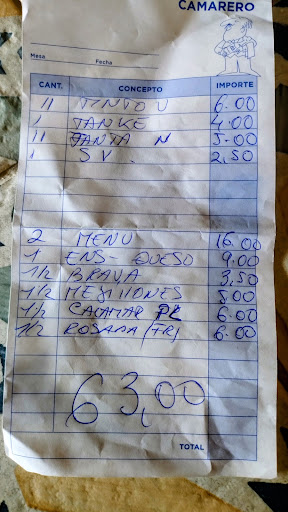 CAMARERO
Mesa Fecha
CANT. CONCEPTO IMPORTE
11 TINTO V 6.00
1 TANKE 4.00
11 FANTA N 5.00
1 S V. 2,50
2 MENU 16.00
1 ENS- QUESO 9.00
1/2 BRAVA 3,50
1/2 MEJILLONES 5.00
1/2 CALAMAR PL 6.00
1/2 ROSADA (FR) 6.00
63,00
TOTAL